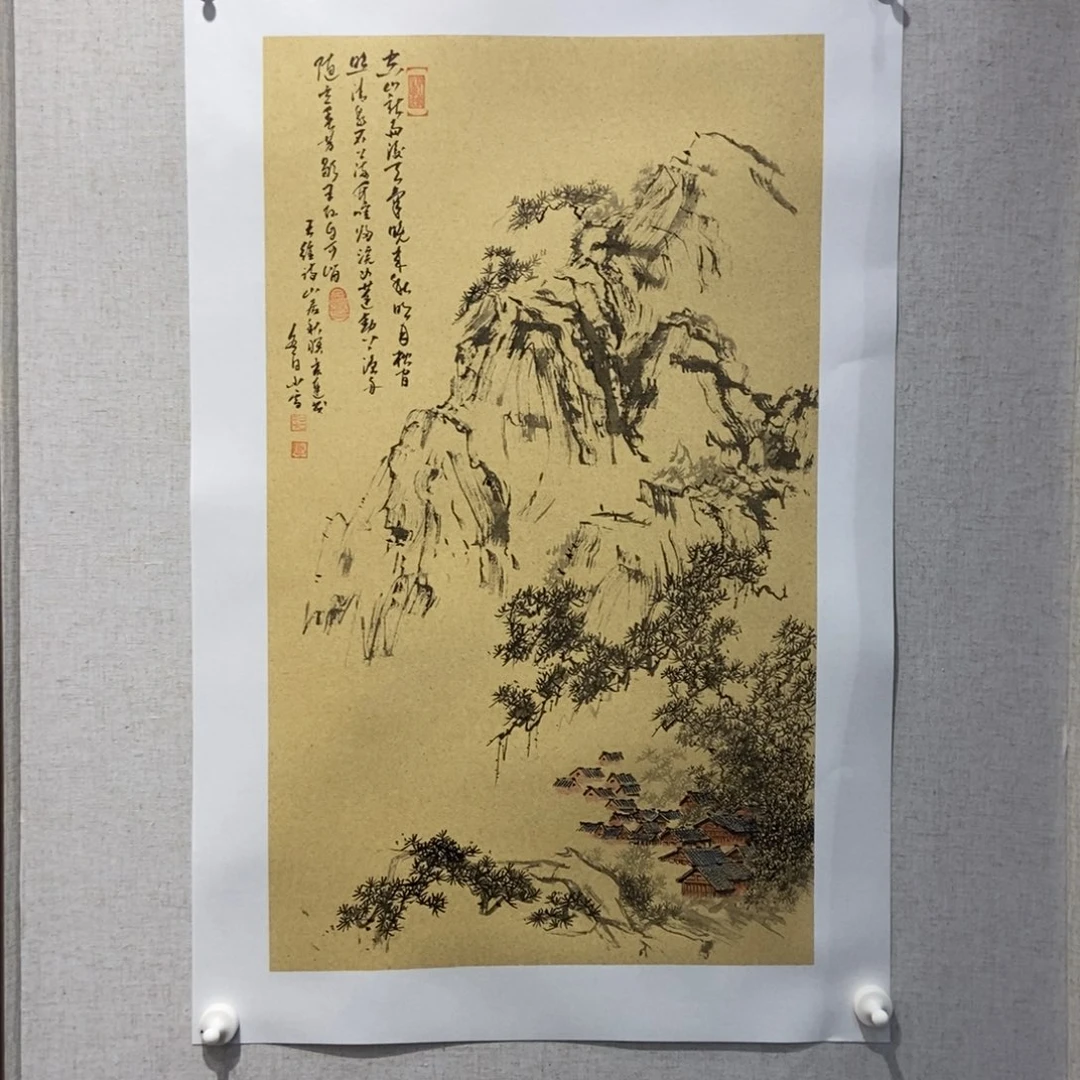 空山新雨後天氣晚來秋明月松間
照清泉石上流竹喧歸浣女蓮動下漁舟
隨意春芳歇王孫自可留
王維詩山居秋暝
小雪